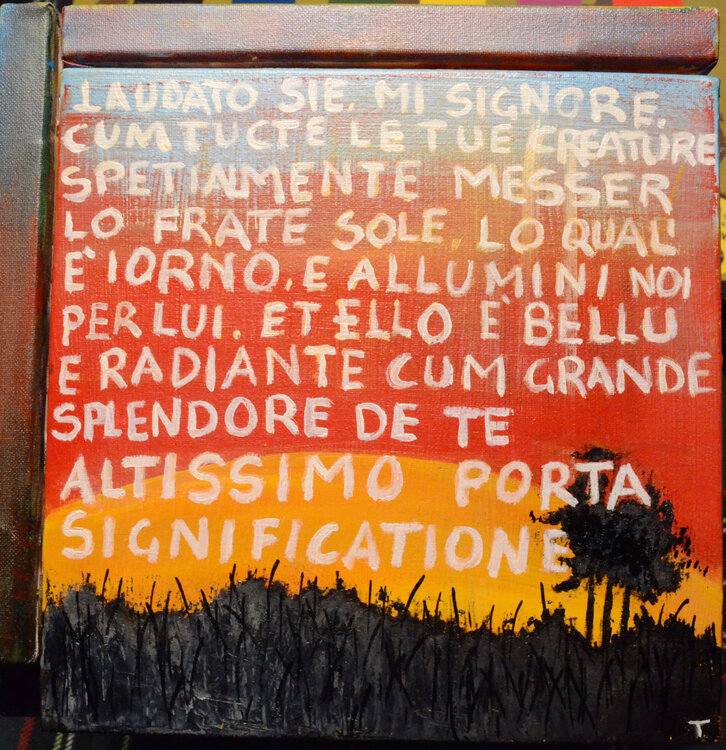 LAUDATO SIE, MI SIGNORE,
CUM TUCTE LE TUE CREATURE
SPETIALMENTE MESSER
LO FRATE SOLE, LO QUAL'
È IORNO, E ALLUMINI NOI
PER LUI. ET ELLO È BELLU
E RADIANTE CUM GRANDE
SPLENDORE DE TE
ALTISSIMO PORTA
SIGNIFICATIONE
T